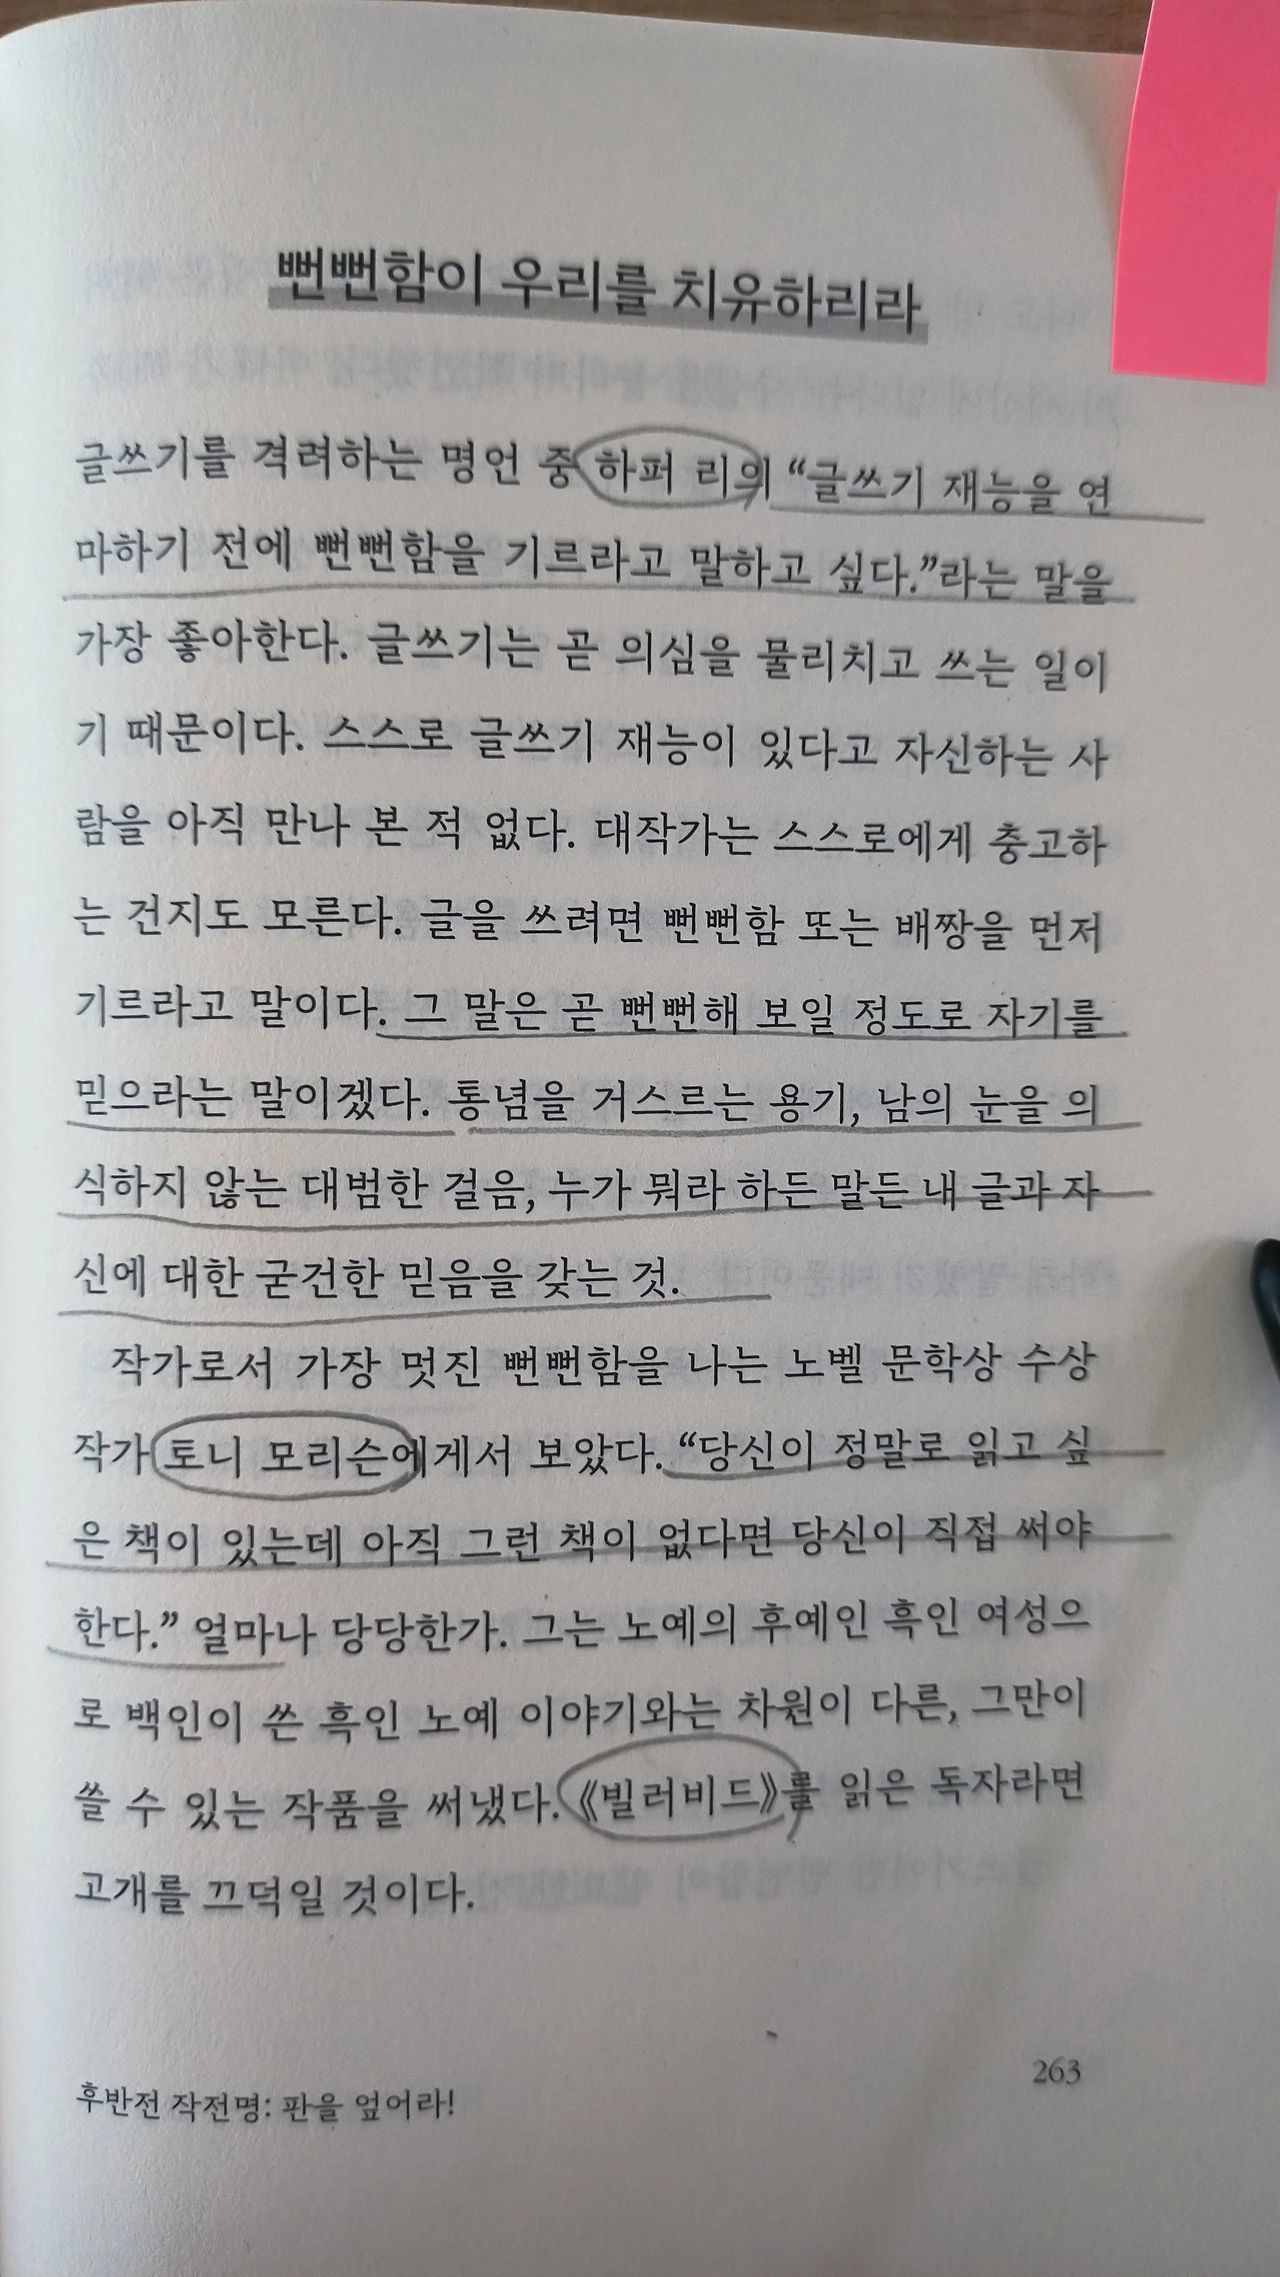 뻔뻔함이 우리를 치유하리라
글쓰기를 격려하는 명언 중 하퍼 리의 “글쓰기 재능을 연
마하기 전에 뻔뻔함을 기르라고 말하고 싶다.”라는 말을
가장 좋아한다. 글쓰기는 곧 의심을 물리치고 쓰는 일이
기 때문이다. 스스로 글쓰기 재능이 있다고 자신하는 사
람을 아직 만나 본 적 없다. 대작가는 스스로에게 충고하
는 건지도 모른다. 글을 쓰려면 뻔뻔함 또는 배짱을 먼저
기르라고 말이다. 그 말은 곧 뻔뻔해 보일 정도로 자기를
믿으라는 말이겠다. 통념을 거스르는 용기, 남의 눈을 의
식하지 않는 대범한 걸음, 누가 뭐라 하든 말든 내 글과 자
신에 대한 굳건한 믿음을 갖는 것.
작가로서 가장 멋진 뻔뻔함을 나는 노벨 문학상 수상
작가 토니 모리슨에게서 보았다. “당신이 정말로 읽고 싶
은 책이 있는데 아직 그런 책이 없다면 당신이 직접 써야
한다.” 얼마나 당당한가. 그는 노예의 후예인 흑인 여성으
로 백인이 쓴 흑인 노예 이야기와는 차원이 다른, 그만이
쓸 수 있는 작품을 써냈다. 《빌러비드》를 읽은 독자라면
고개를 끄덕일 것이다.
263
후반전 작전명: 판을 엎어라!